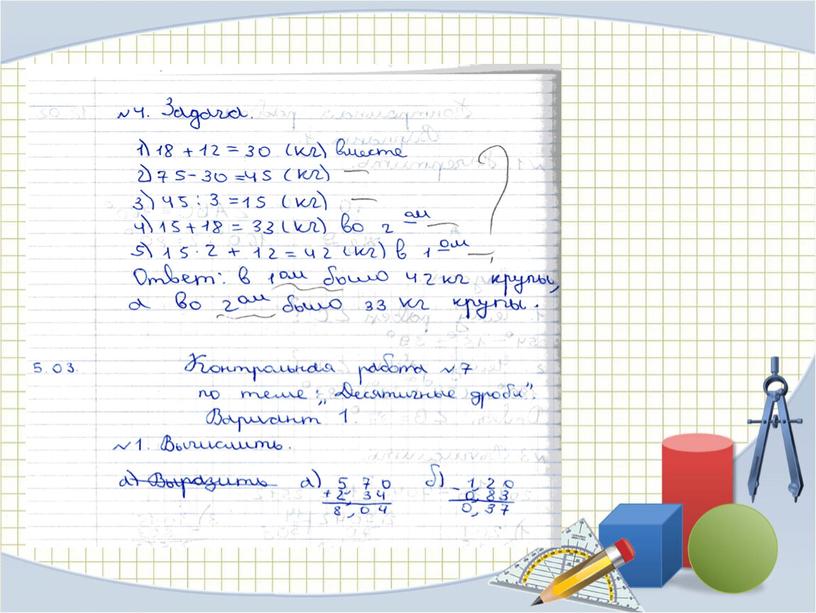 №4. Задача.
1) 18 + 12 = 30 (кг) вместе
2) 75 - 30 = 45 (кг) —
3) 45 : 3 = 15 (кг) —
4) 15 + 18 = 33 (кг) во 2 ой —
5) 15 · 2 + 12 = 42 (кг) в 1 ом —
Ответ: в 1 ом было 42 кг крупы,
а во 2 ом было 33 кг крупы.
5.03. Контрольная работа №7
по теме: „Десятичные дроби".
Вариант 1
№1. Вычислить.
а) Выразить а) 5,70 б) 1,20
+ 2,34 - 0,83
8,04 0,37